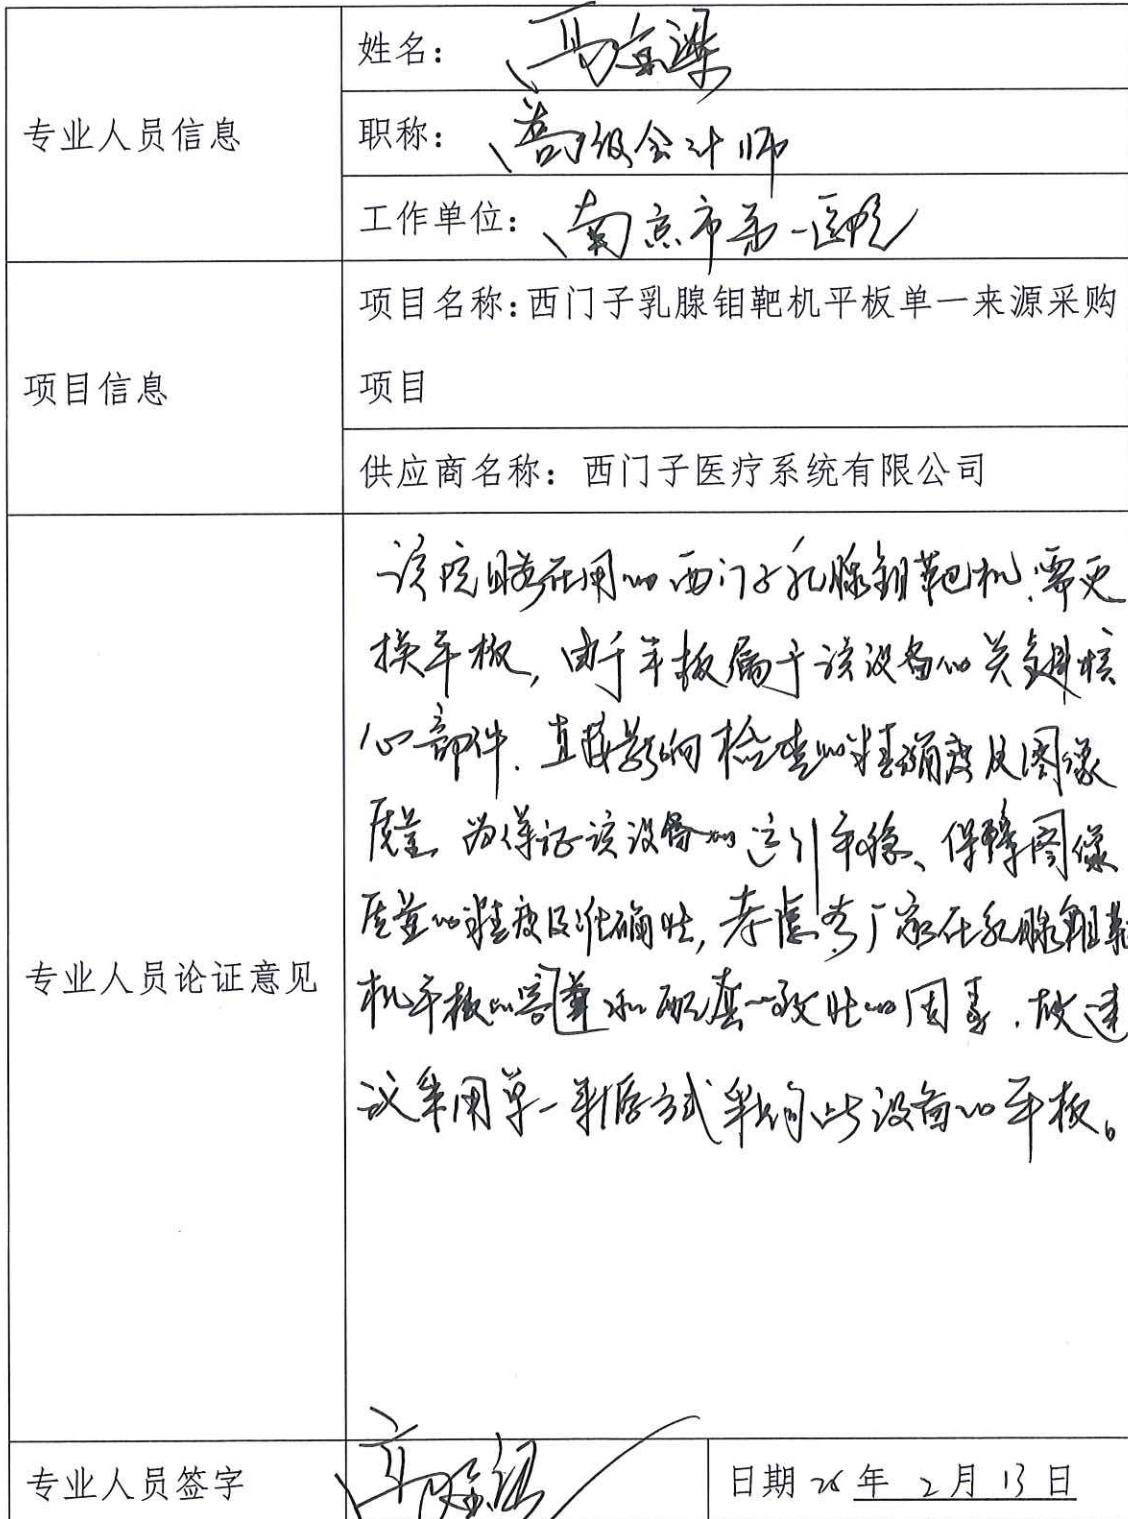 专业人员信息
姓名：
职称：高级会计师
工作单位：南京市第一医院
项目信息
项目名称：西门子乳腺钼靶机平板单一来源采购
项目
供应商名称：西门子医疗系统有限公司
专业人员论证意见
该院目前在用的西门子乳腺钼靶机，需更
换平板，由于平板属于该设备的关键核
心部件，直接影响检查的精确度及图像
质量，为保证该设备的运行平稳、保障图像
质量的精度及准确性，考虑 厂家在乳腺钼靶
机平板的 和配套一致性的因素，故建
议采用单一来源方式采购此设备的平板。
专业人员签字
日期 26 年 2 月 13 日